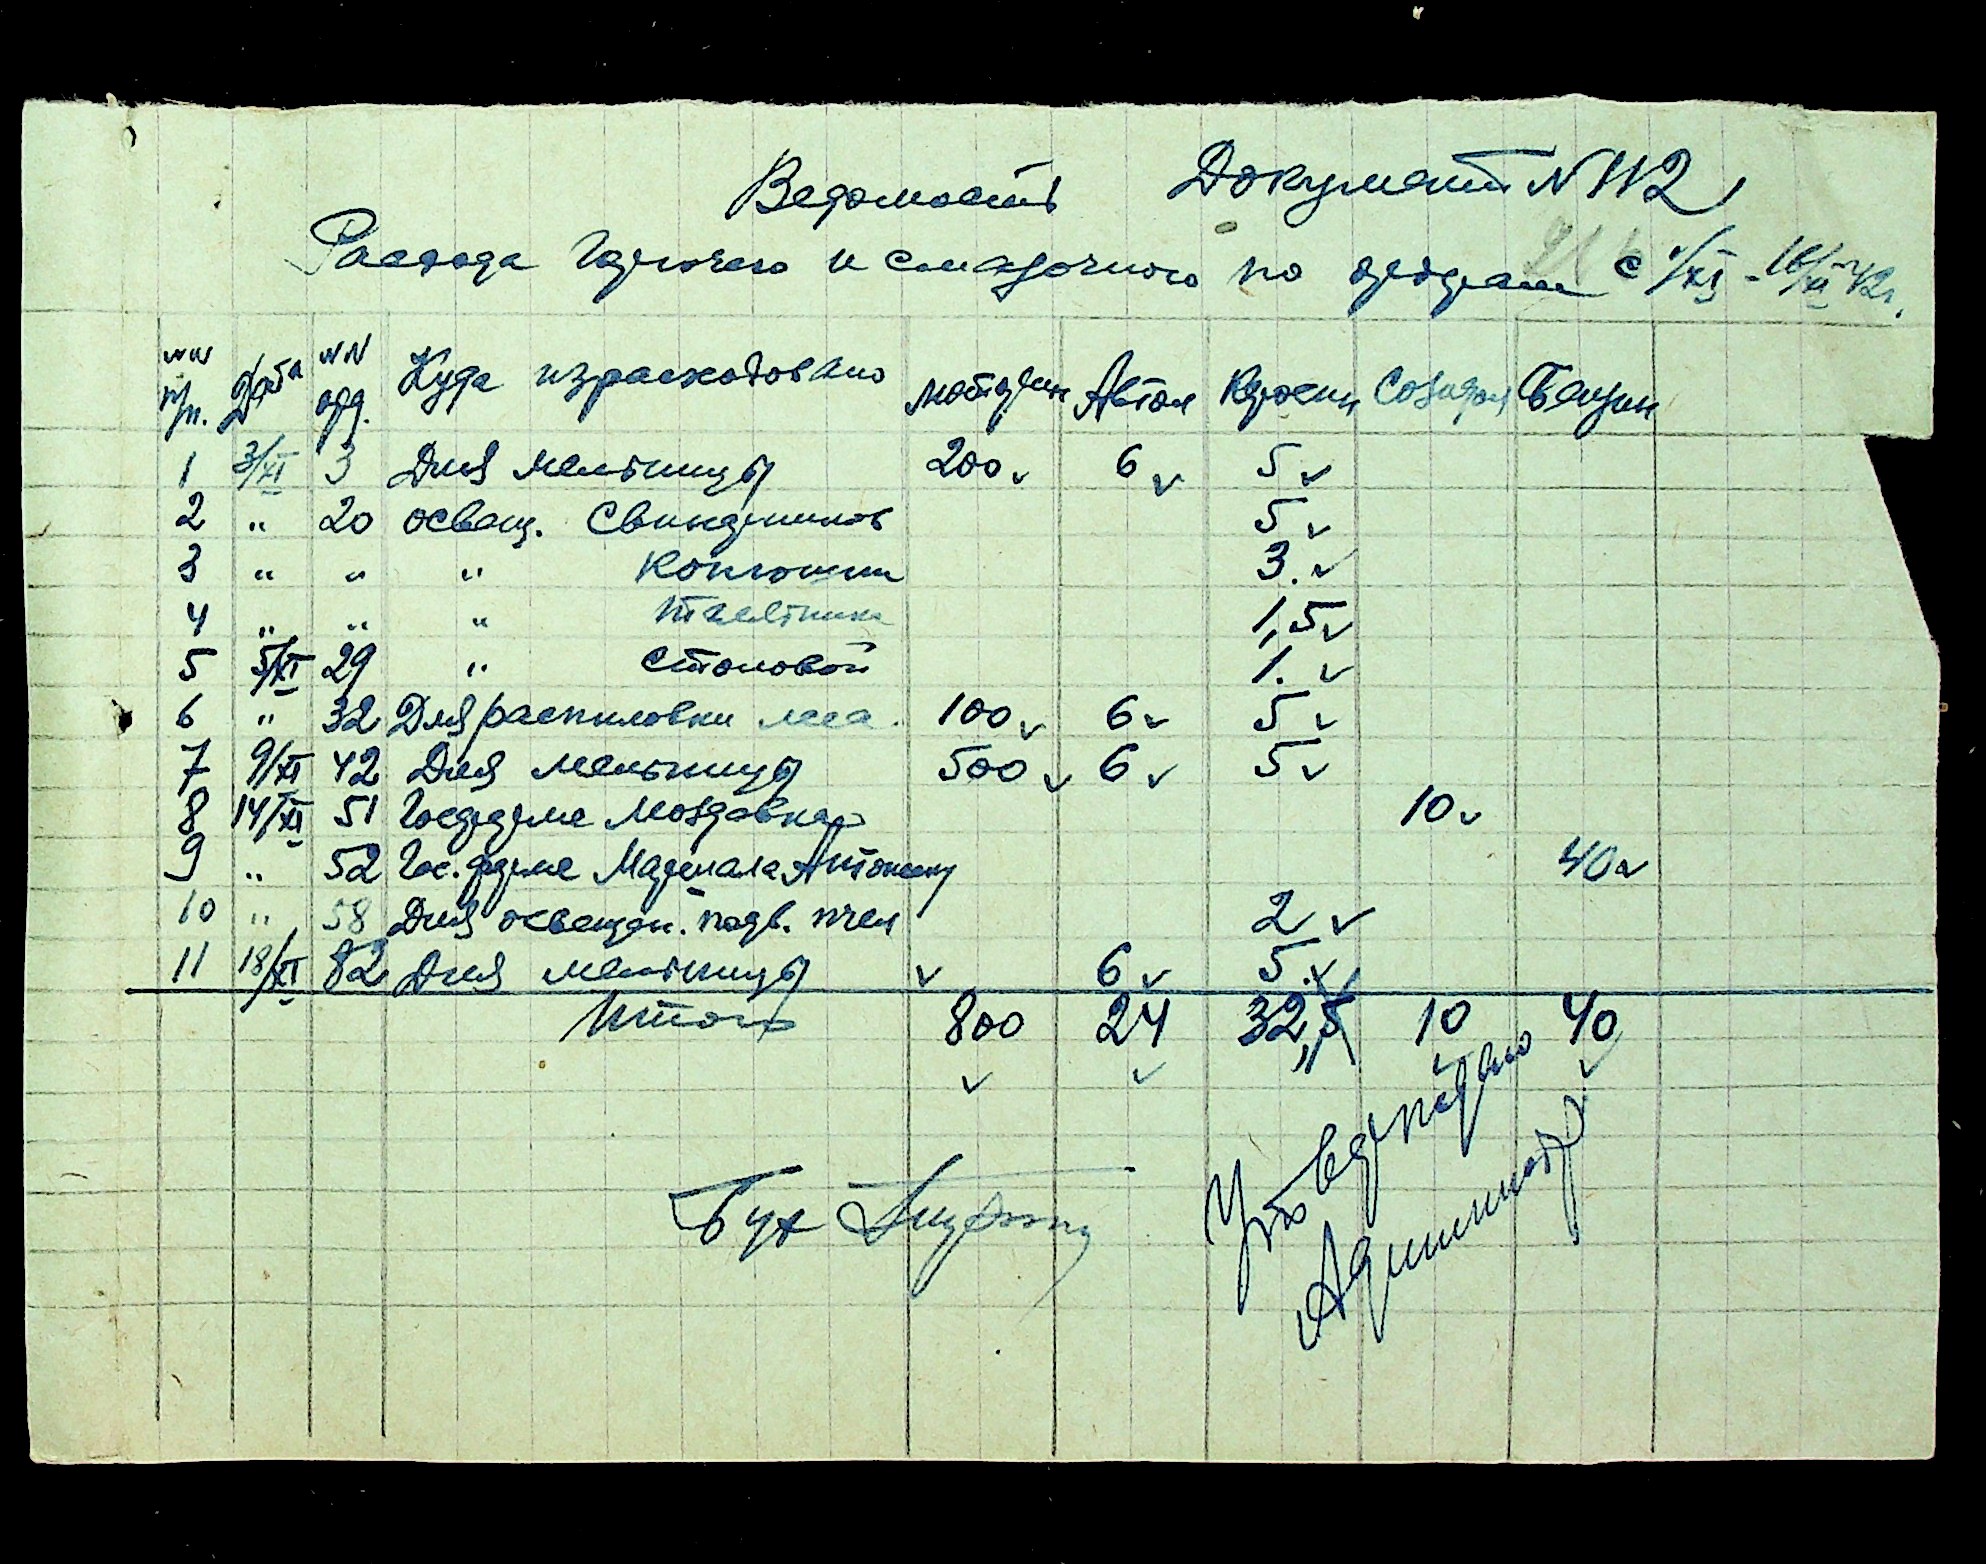 Ведомость Документ N 112
Расхода горючего и смазочного по ордерам с 1/XI - 18/XI 42г.
NN п/п. Дата NN орд. Куда израсходовано Моторин Автол Керосин Солидол Бензин
1 3/XI 3 Для мельницы 200 6 5
2 " 20 освещ. свинарников 5
3 " " " Конюшни 3.
4 " " " 1,5
5 5/XI 29 " столовой 1.
6 " 32 Для распиловки леса. 100 6 5
7 9/XI 42 Для мельницы 500 6 5
8 14/XI 51 10
9 " 52 Гос. ферме Антонены 40
10 " 58 Для освещен. подв. пчел 2
11 18/XI 82 Для мельницы 6 5.
Итого 800 24 32,5 10 40
Бух
Утверждено
Администратор